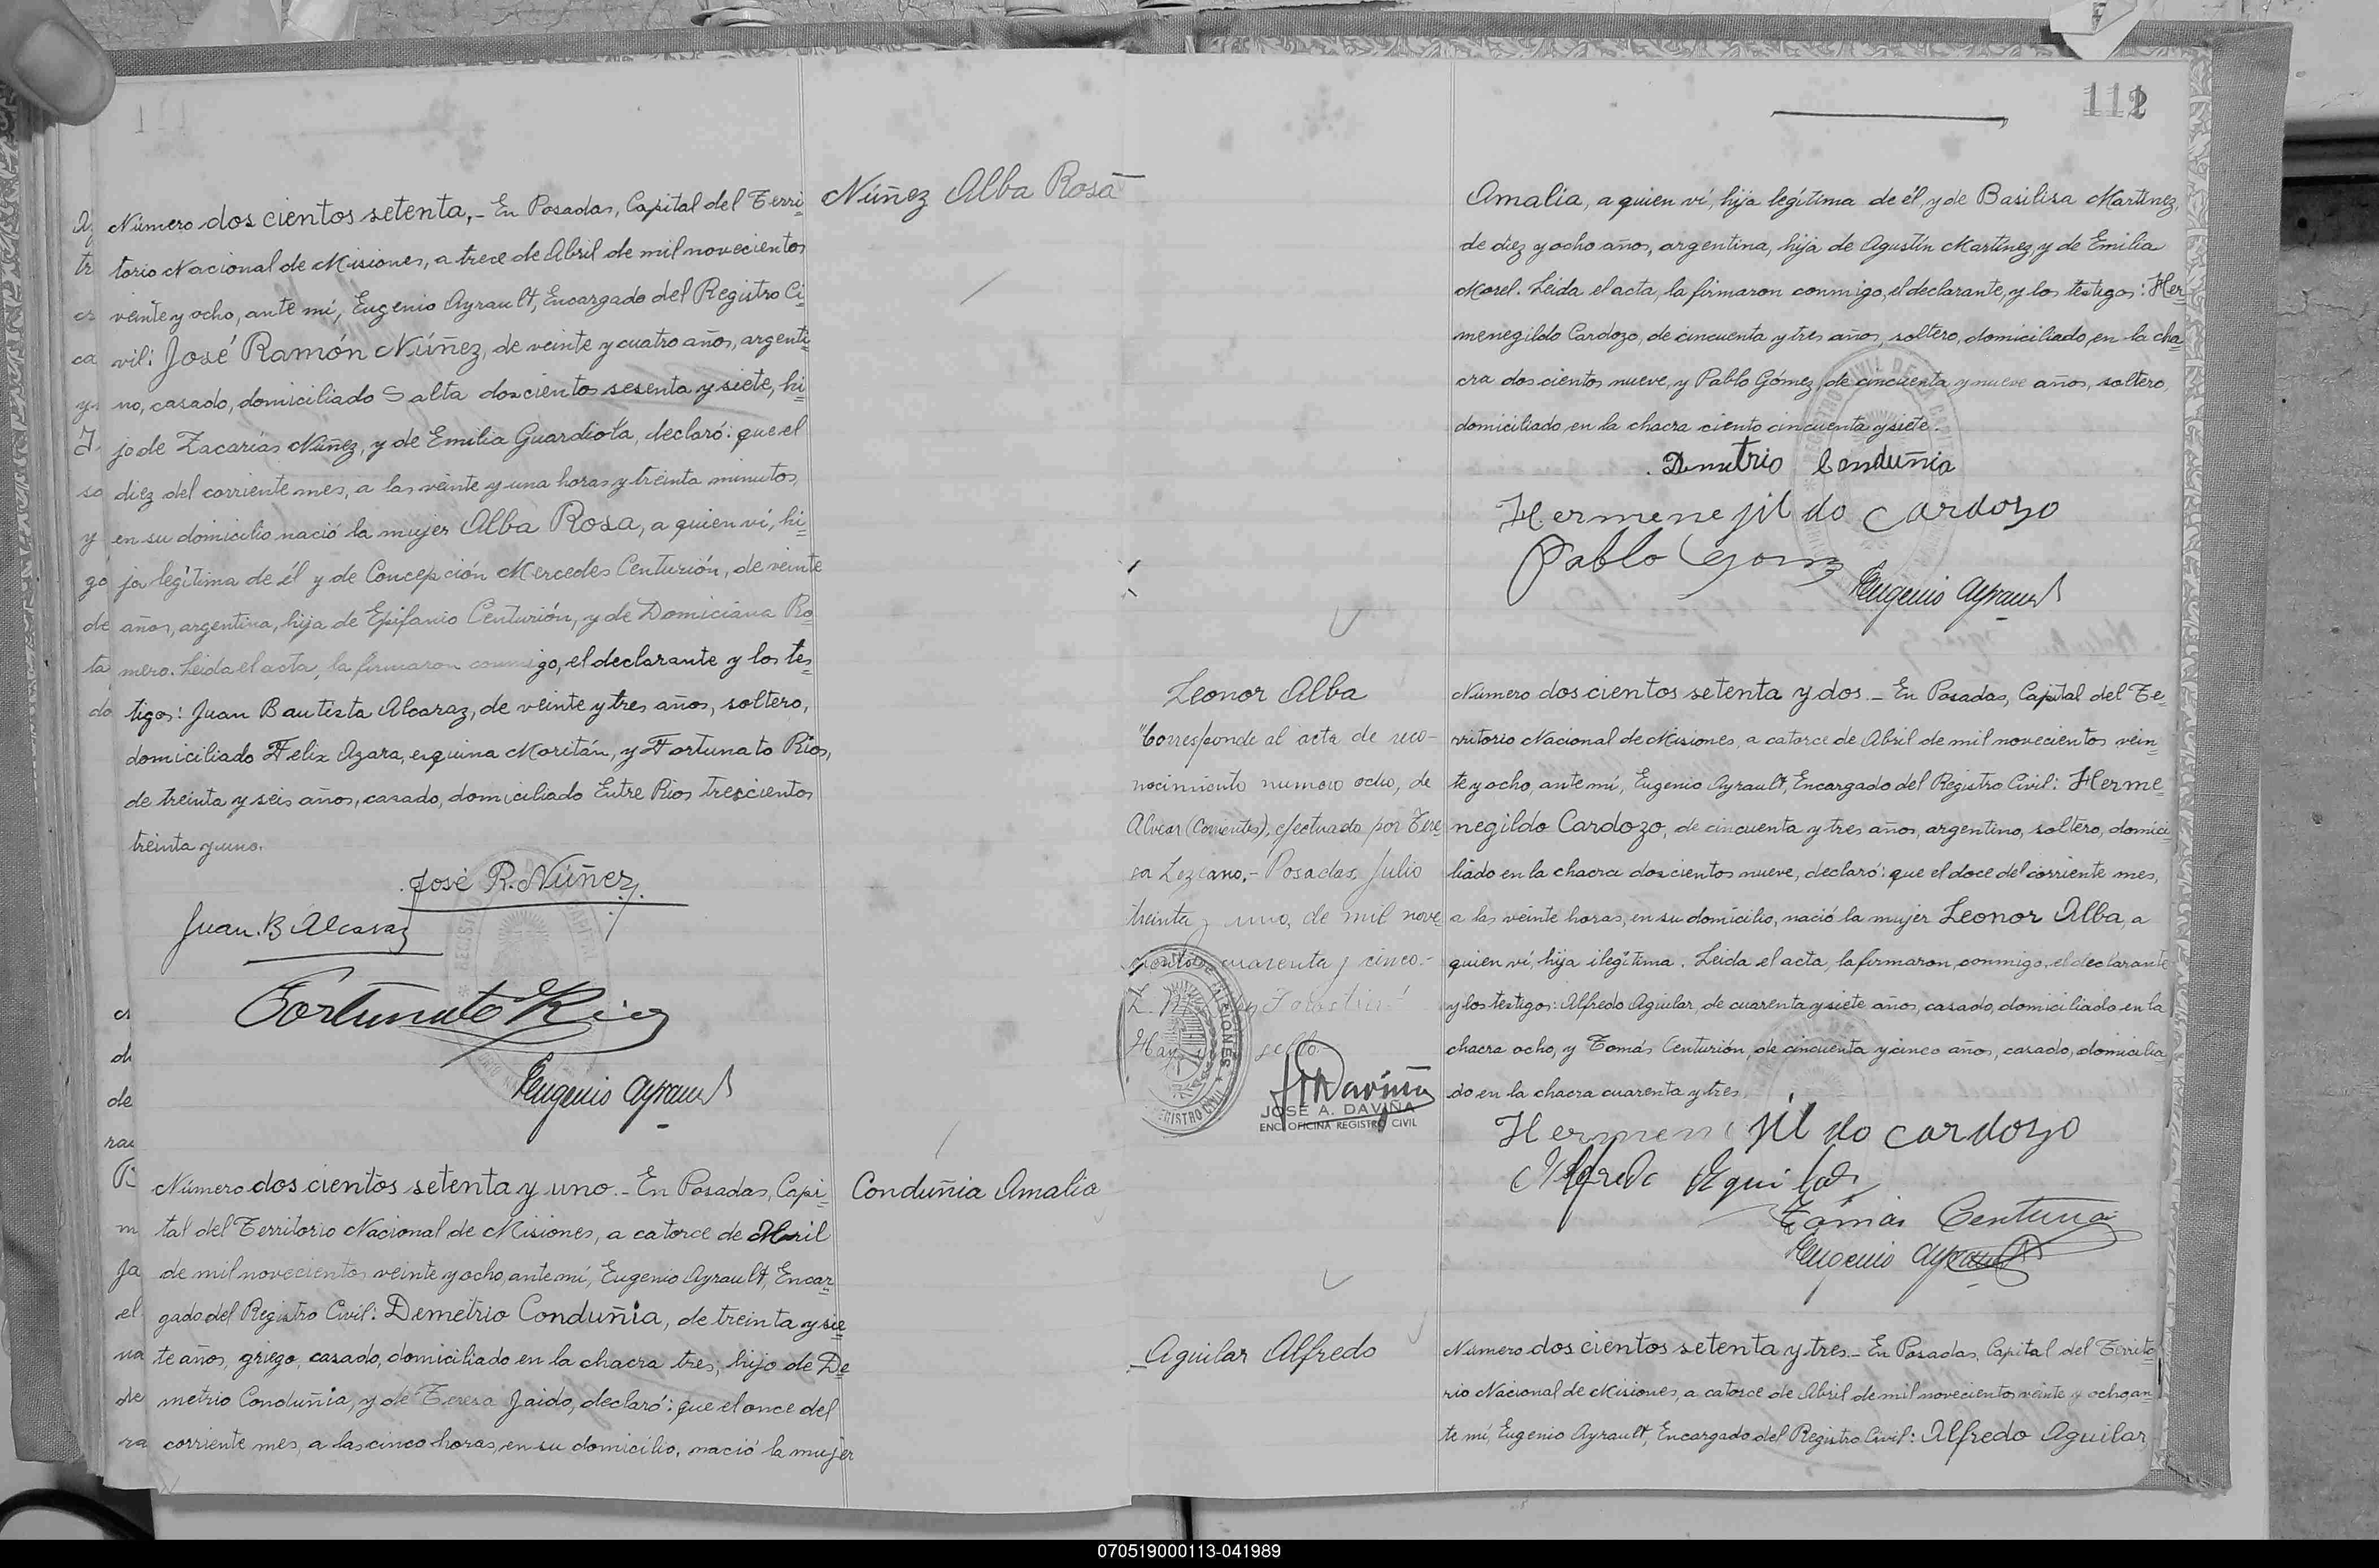 111
Número dos cientos setenta,- En Posadas, Capital del Terri-
torio Nacional de Misiones, a trece de Abril de mil novecientos
veinte y ocho, ante mí, Eugenio Ayrault, Encargado del Registro Ci-
vil: José Ramón Núñez, de veinte y cuatro años, argenti-
no, casado, domiciliado Salta dos cientos sesenta y siete, hi-
jo de Zacarías Núñez, y de Emilia Guardiola, declaró: que el
diez del corriente mes, a las veinte y una horas y treinta minutos,
en su domicilio nació la mujer Alba Rosa, a quien ví, hi-
ja legítima de él y de Concepción Mercedes Centurión, de veinte
años, argentina, hija de Epifanio Centurión, y de Domiciana Ro-
mero. Leida el acta, la firmaron conmigo, el declarante y los tes-
tigos: Juan Bautista Alcaraz, de veinte y tres años, soltero,
domiciliado Felix Azara, esquina Moritán, y Fortunato Rios,
de treinta y seis años, casado, domiciliado Entre Rios trescientos
treinta y uno.
José R. Núñez
Juan. B Alcaraz
Fortunato Rios
Eugenio Ayrault
Núñez Alba Rosa
Número dos cientos setenta y uno.- En Posadas, Capi-
tal del Territorio Nacional de Misiones, a catorce de Abril
de mil novecientos veinte y ocho, ante mí, Eugenio Ayrault, Encar-
gado del Registro Civil: Demetrio Conduñia, de treinta y sie-
te años, griego, casado, domiciliado en la chacra tres, hijo de De-
metrio Conduñia, y de Teresa Jaido, declaró: que el once del
corriente mes, a las cinco horas, en su domicilio, nació la mujer
Conduñia Amalia
112
Amalia, a quien ví, hija legítima de él, y de Basilisa Martínez,
de diez y ocho años, argentina, hija de Agustín Martínez, y de Emilia
Morel. Leida el acta, la firmaron conmigo, el declarante, y los testigos: Her-
menegildo Cardozo, de cincuenta y tres años, soltero, domiciliado, en la cha-
cra dos cientos nueve, y Pablo Gómez, de cincuenta y nueve años, soltero,
domiciliado, en la chacra ciento cincuenta y siete.
Demetrio Conduñia
Hermenejildo Cardozo
Pablo Gomz
Eugenio Ayrault
Leonor Alba
"Corresponde al acta de reco-
nocimiento numero ocho, de
Alvear (Corrientes), efectuado por Tere-
sa Lezcano.- Posadas, Julio
treinta y uno, de mil nove-
cientos cuarenta y cinco.-
Hay un sello.
JOSÉ A. DAVIÑA
ENC. OFICINA REGISTRO CIVIL
Número dos cientos setenta y dos.- En Posadas, Capital del Te-
rritorio Nacional de Misiones, a catorce de Abril de mil novecientos vein-
te y ocho, ante mí, Eugenio Ayrault, Encargado del Registro Civil: Herme-
negildo Cardozo, de cincuenta y tres años, argentino, soltero, domici-
liado en la chacra dos cientos nueve, declaró: que el doce del corriente mes,
a las veinte horas, en su domicilio, nació la mujer Leonor Alba, a
quien ví, hija ilegítima. Leida el acta, la firmaron, conmigo, el declarante
y los testigos: Alfredo Aguilar, de cuarenta y siete años, casado, domiciliado en la
chacra ocho, y Tomás Centurión, de cincuenta y cinco años, casado, domicilia-
do en la chacra cuarenta y tres.
Hermenejildo Cardozo
Alfredo Aguilar
Tomas Centurion
Eugenio Ayrault
Aguilar Alfredo
Número dos cientos setenta y tres.- En Posadas, Capital del Territo-
rio Nacional de Misiones, a catorce de Abril de mil novecientos veinte y ocho, an-
te mí, Eugenio Ayrault, Encargado del Registro Civil: Alfredo Aguilar
070519000113-041989